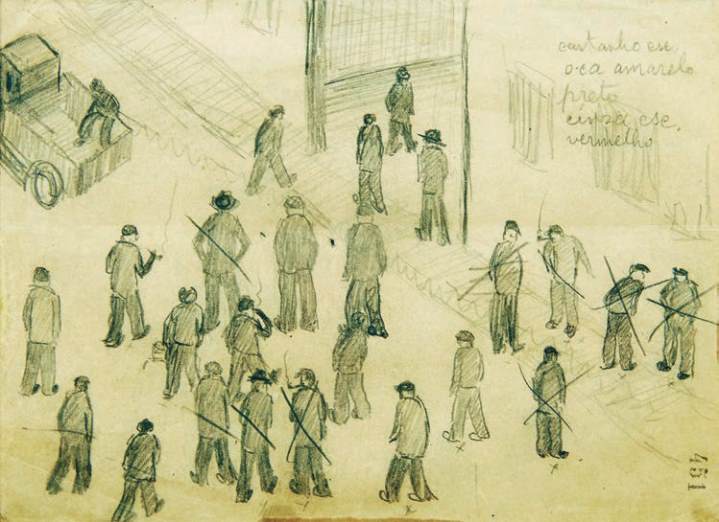 castanho esc.
oca amarelo
preto
cinza esc.
vermelho
151